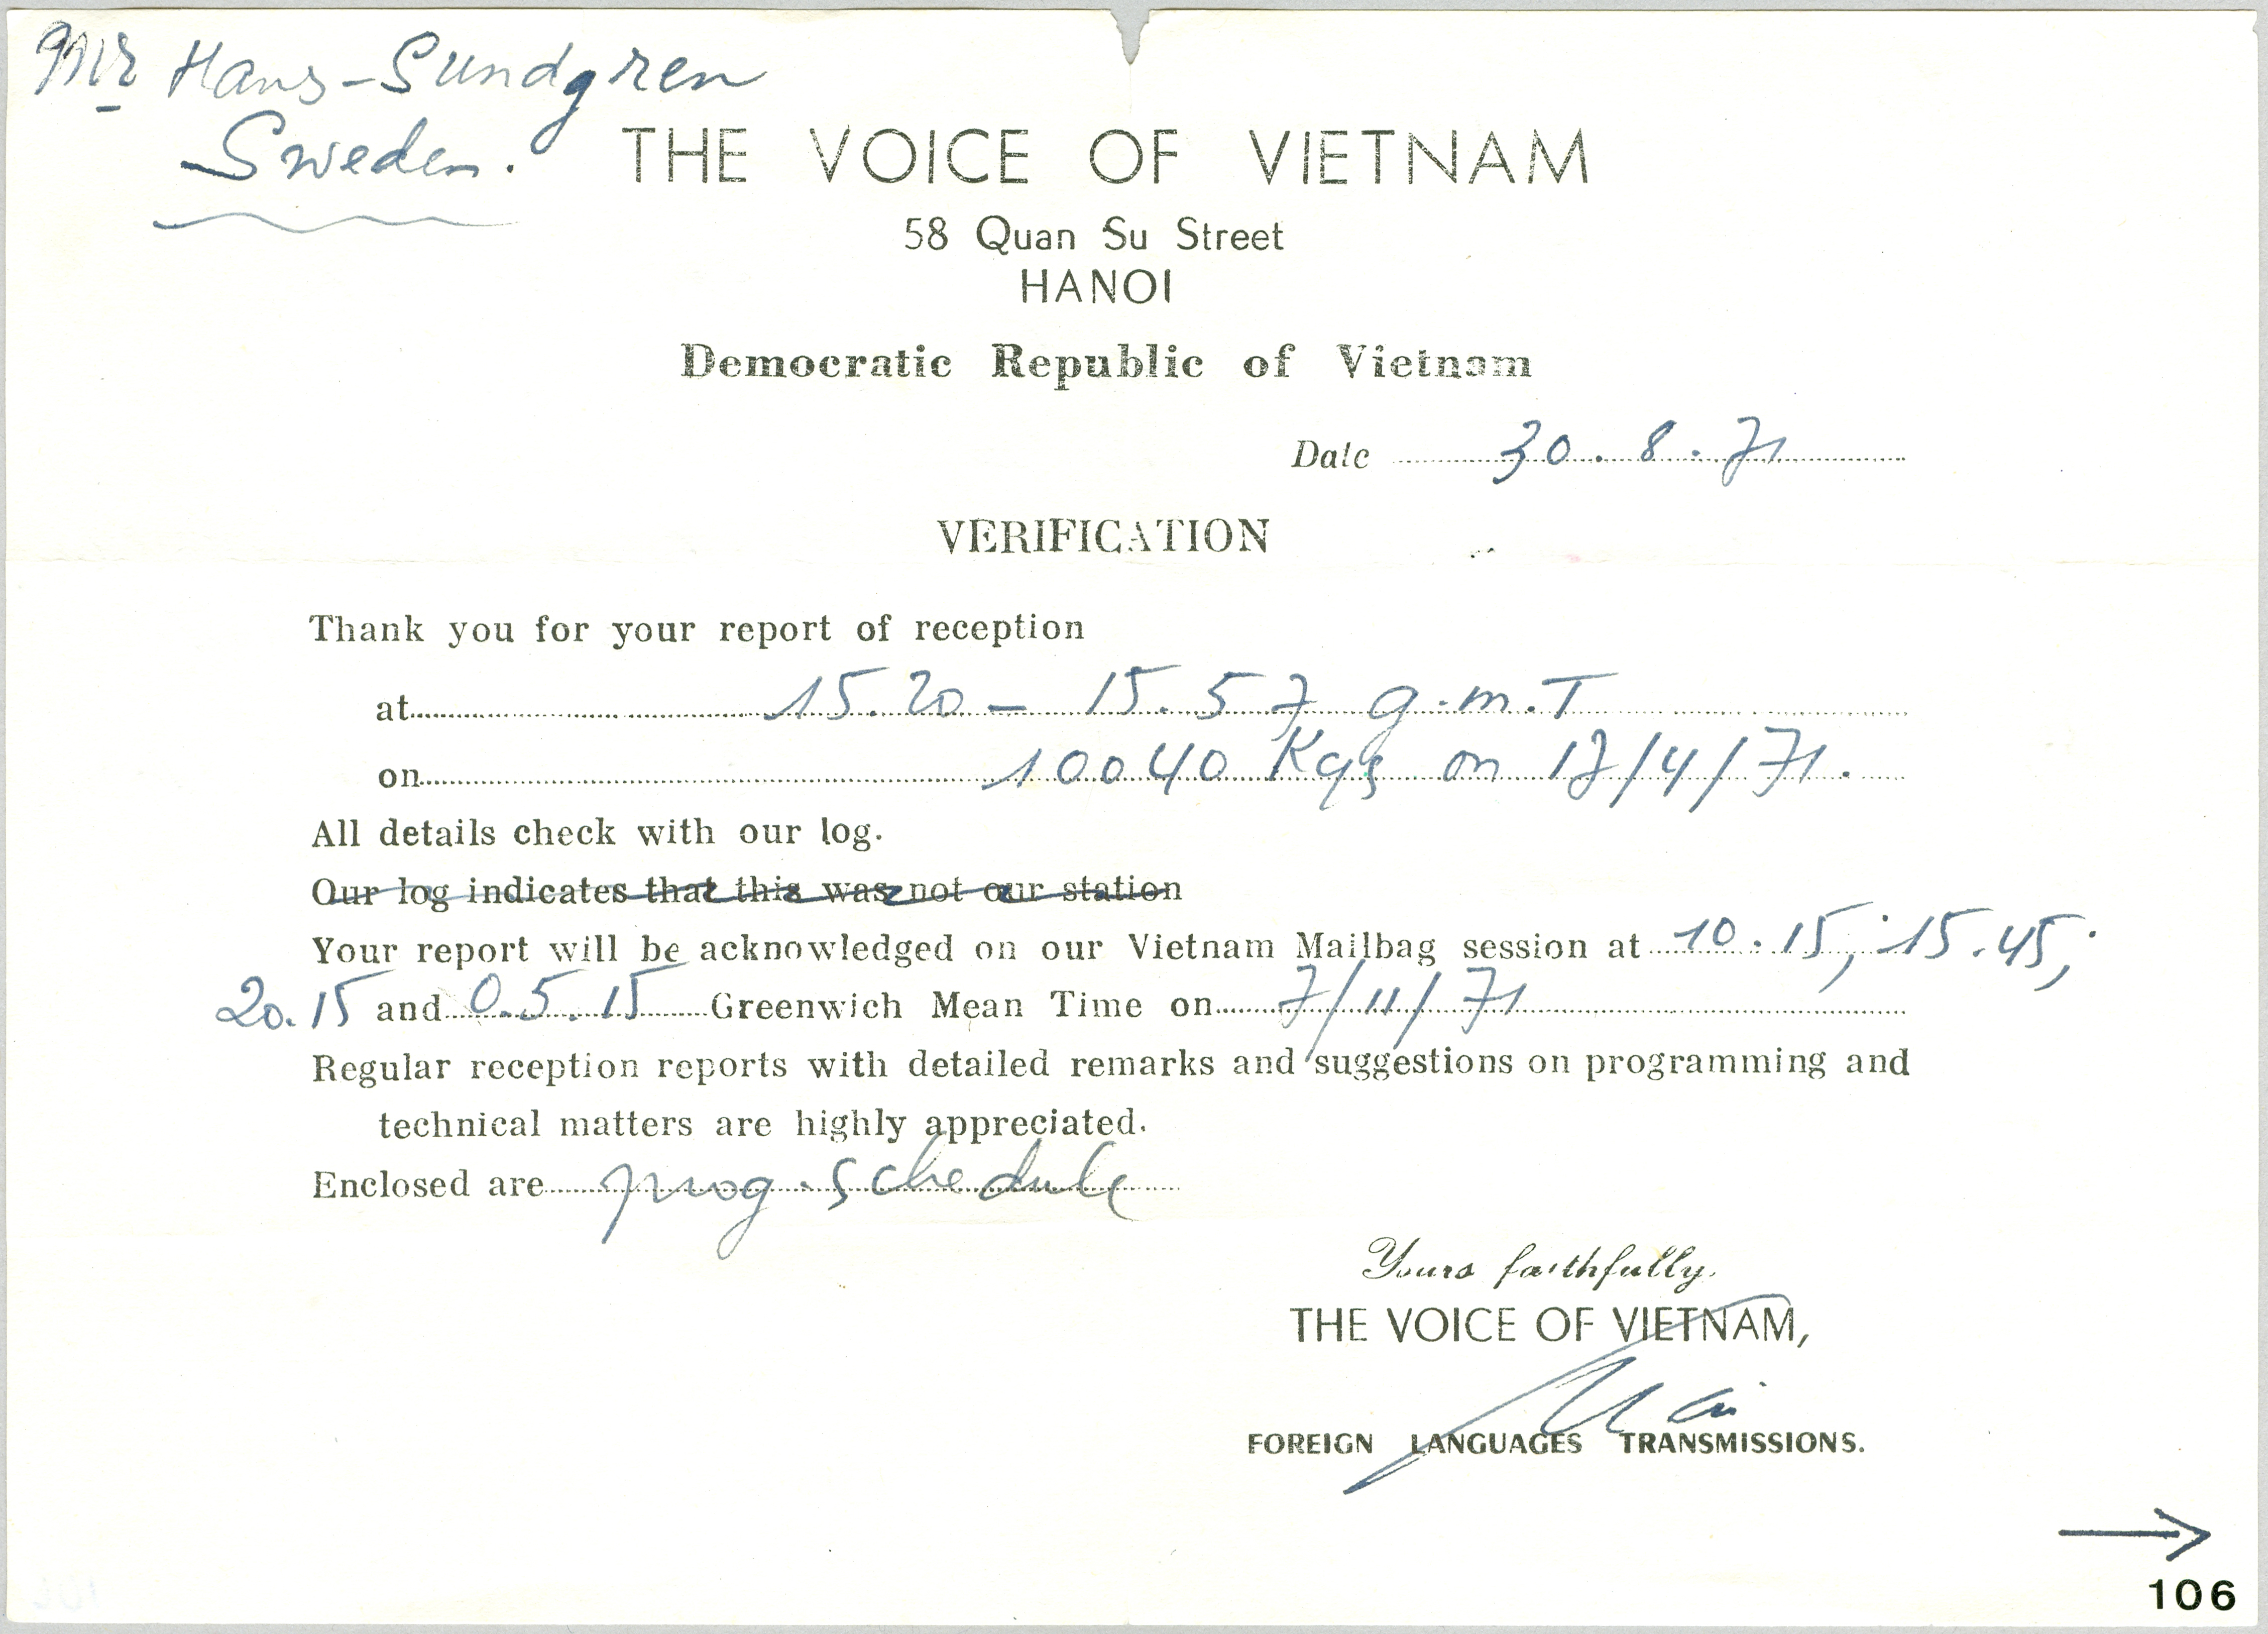 Mr Hans-Sundgren
Sweden.
THE VOICE OF VIETNAM
58 Quan Su Street
HANOI
Democratic Republic of Vietnam
Date 30.8.71
VERIFICATION
Thank you for your report of reception
at 15.20 – 15.57 g.m.T
on 10040 Kgs on 17/4/71.
All details check with our log.
Our log indicates that this was not our station
Your report will be acknowledged on our Vietnam Mailbag session at 10.15, 15.45,
20.15 and 0.5.15 Greenwich Mean Time on 7/11/71
Regular reception reports with detailed remarks and suggestions on programming and
technical matters are highly appreciated.
Enclosed are prog. schedule
Yours faithfully,
THE VOICE OF VIETNAM,
FOREIGN LANGUAGES TRANSMISSIONS.
106